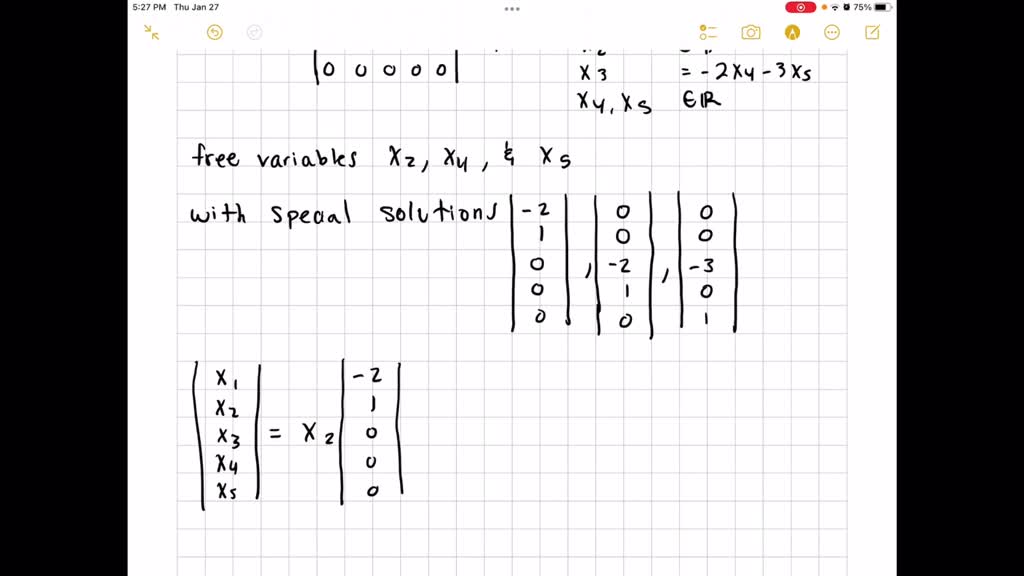 5:27 PM Thu Jan 27
75%
0 0 0 0 0
x3 = -2x4 - 3x5
x4, x5 ∈ ℝ
free variables x2, x4, & x5
with special solutions
-2 0 0
1 0 0
0 , -2 , -3
0 1 0
0 0 1
x1 -2
x2 1
x3 = x2 0
x4 0
x5 0